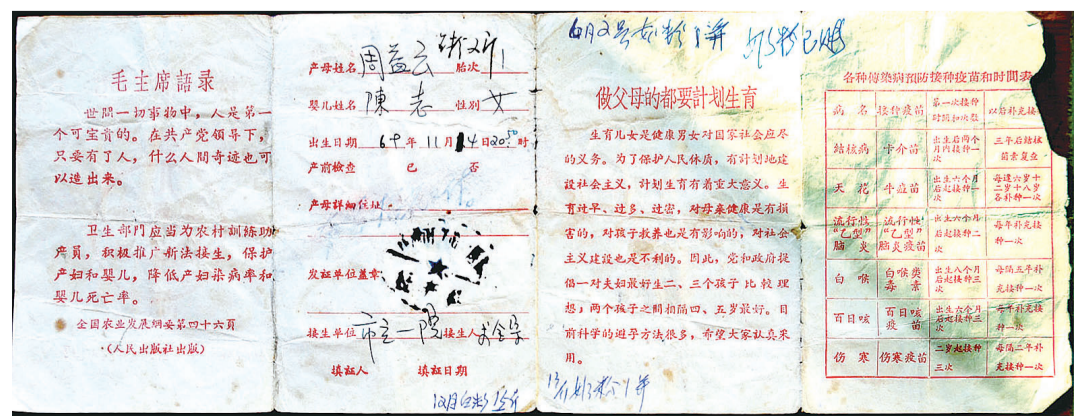 毛主席語录
世間一切事物中，人是第一
个可宝貴的。在共产党領导下，
只要有了人，什么人間奇迹也可
以造出来。
卫生部門应当为农村訓练助
产員，积极推广新法接生，保护
产妇和嬰儿，降低产妇染病率和
嬰儿死亡率。
全国农业发展綱要第四十六頁
·(人民出版社出版)
产母姓名 周益云 胎次 1
嬰儿姓名 陳志 性別 女
出生日期 69年11月14日20:50时
产前檢查 已 否
产母詳細住址
发証单位蓋章
接生单位 市立一院 接生人
填証人 填証日期
做父母的都要計划生育
生育儿女是健康男女对国家社会应尽
的义务。为了保护人民体质，有計划地建
設社会主义，計划生育有着重大意义。生
育过早、过多、过密，对母亲健康是有損
害的，对孩子教养也是有影响的，对社会
主义建設也是不利的。因此，党和政府提
倡一对夫妇最好生二、三个孩子比較理
想，两个孩子之間相隔四、五岁最好。目
前科学的避孕方法很多，希望大家认真采
用。
各种傳染病預防接种疫苗和时間表
病 名 接种疫苗 第一次接种时間和次数 以后补充接
結核病 卡介苗 出生后两个月内接种一次 三年后結核菌素复查
天花 牛痘苗 出生六个月后起接种一次 每逢六岁十二岁十八岁各补种一次
流行性“乙型”脑炎 流行性“乙型”脑炎疫苗 出生六个月后起接种二次 每年补充接种一次
白喉 白喉类毒素 出生八个月后起接种三次 每隔五年补充接种一次
百日咳 百日咳疫苗 出生六个月后起接种三次 每年补充接种一次
伤寒 伤寒疫苗 二岁起接种三次 每隔二年补充接种一次